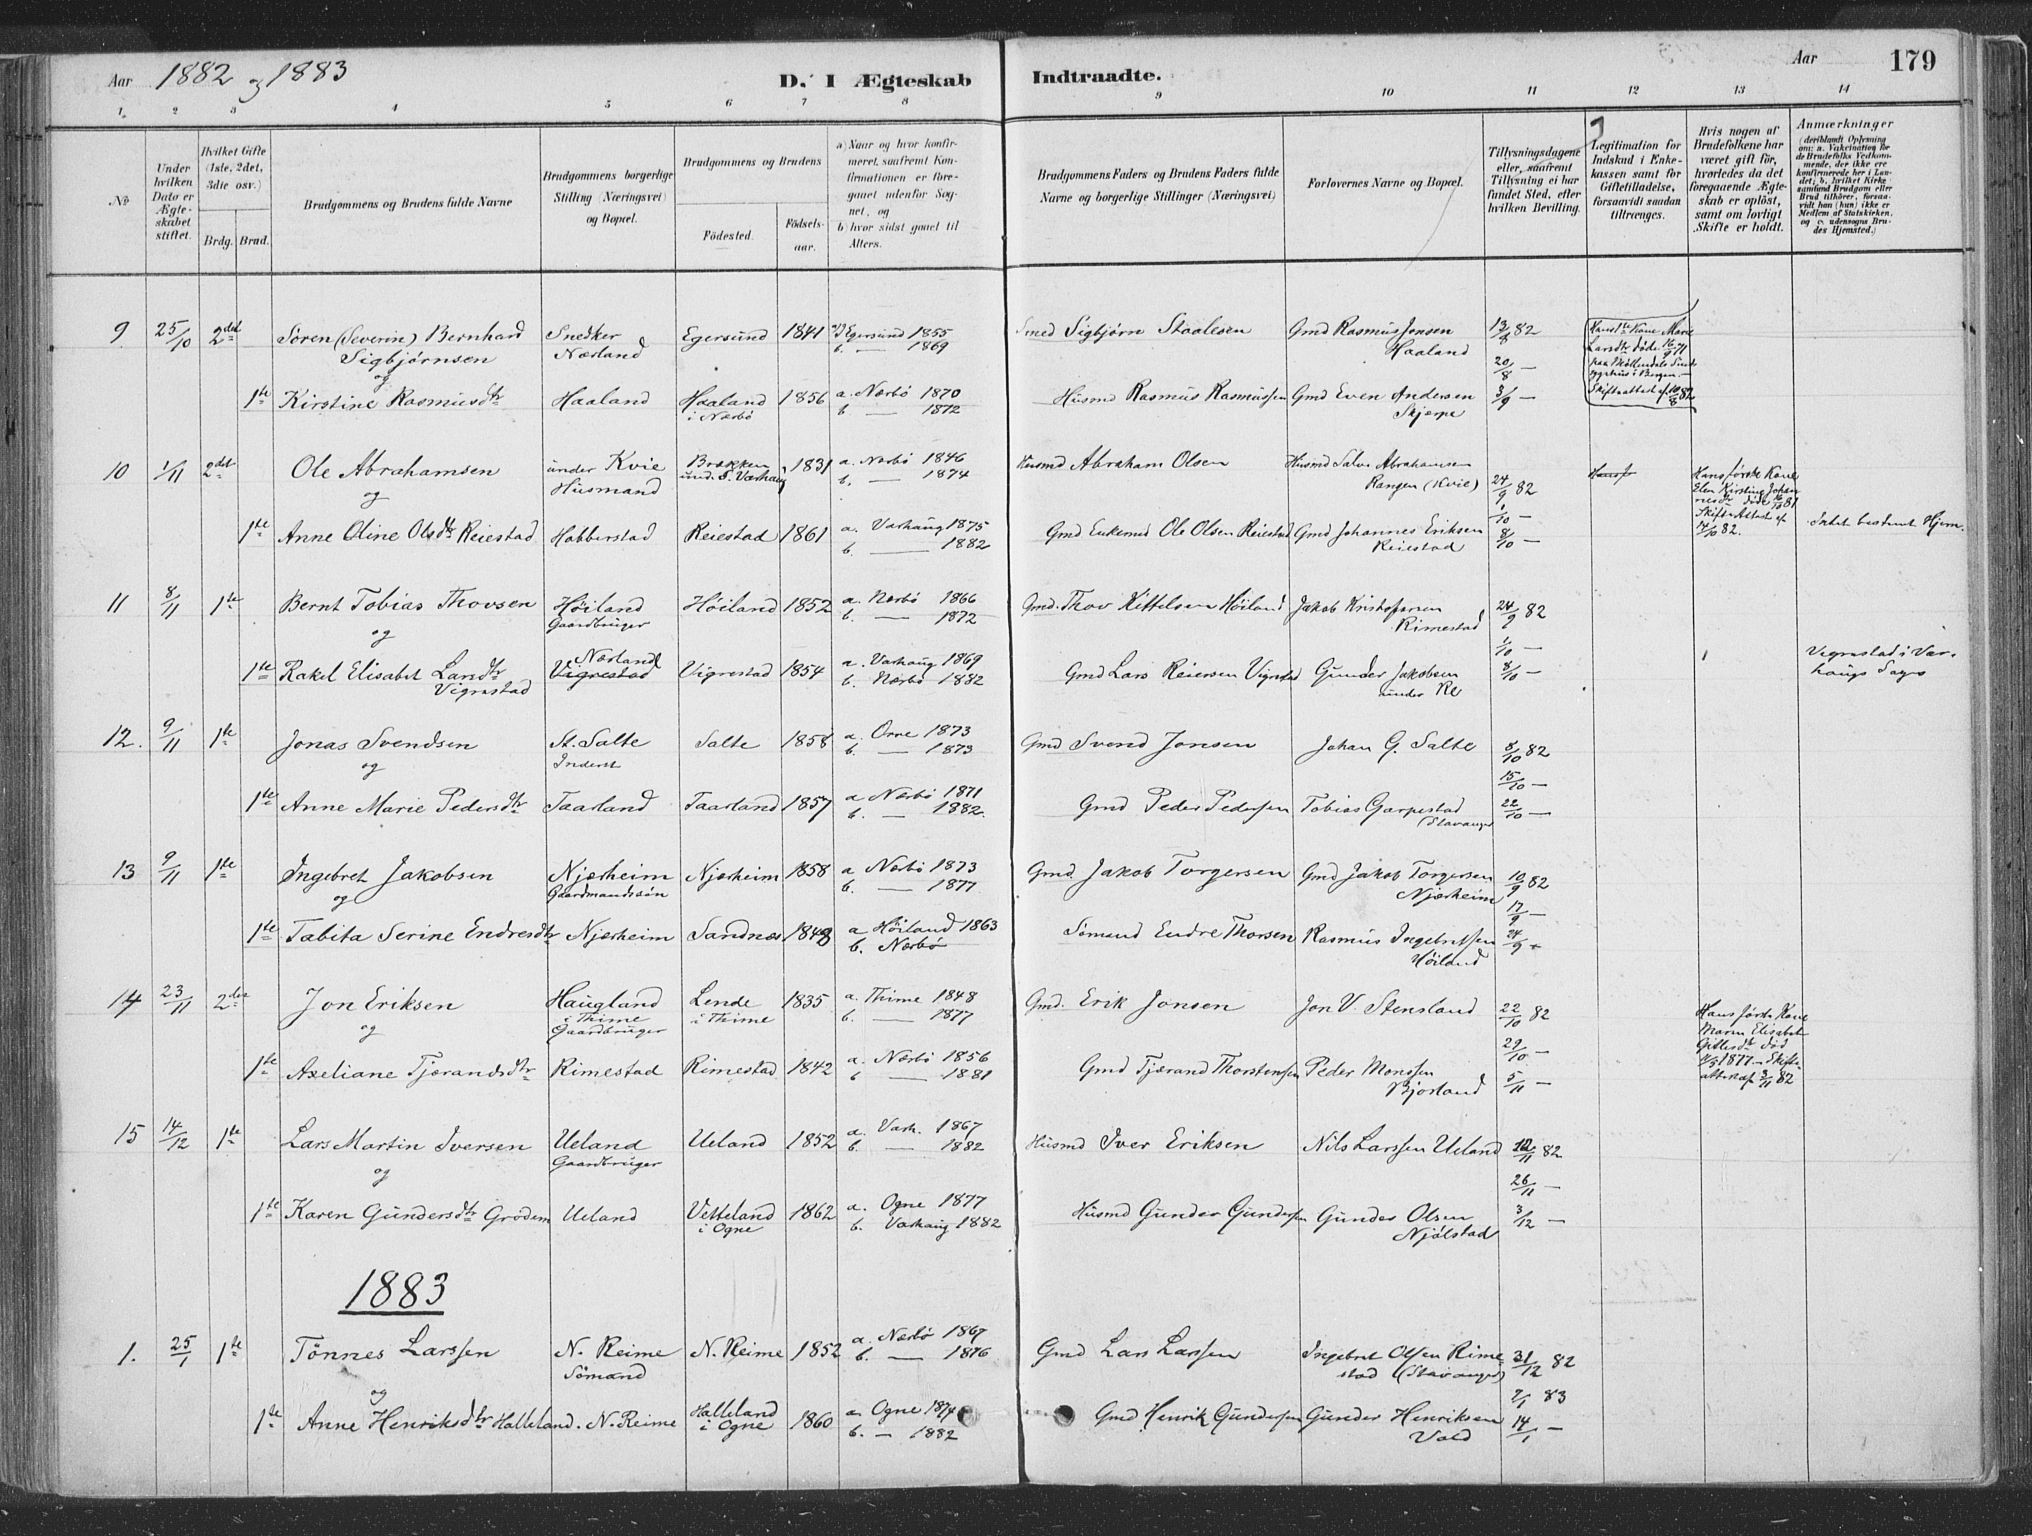 Aar 1882 og 1883
D. I Ægteskab Indtraadte.
Aar 179
1. 2 3 4 5 6 7 8 9 10 11 12 13 14
No
Under hvilken Dato er Ægteskabet stiftet.
Hvilket Gifte (1ste, 2det, 3die osv.)
Brdg. Brud.
Brudgommens og Brudens fulde Navne
Brudgommens borgerlige Stilling (Næringsvei) og Bopæl.
Brudgommens og Brudens
Fødested.
Fødsels-aar.
a) Naar og hvor konfirmeret, saafremt Konfirmationen er foregaaet udenfor Sognet, og
b) hvor sidst gaaet til Alters.
Brudgommens Faders og Brudens Faders fulde Navne og borgerlige Stillinger (Næringsvei)
Forlovernes Navne og Bopæl.
Tillysningsdagene eller, saafremt Tillysning ei har fundet Sted, efter hvilken Bevilling.
Legitimation for Indskud i Enkekassen samt for Giftetilladelse, forsaavidt saadan tiltrænges.
Hvis nogen af Brudefolkene har været gift før, hvorledes da det foregaaende Ægteskab er opløst, samt om lovligt Skifte er holdt.
Anmærkninger (deriblandt Oplysning om: a. Vakcination for de Brudefolks Vedkommende, der ikke ere konfirmerede her i Landet; b. hvilket Kirkesamfund Brudgom eller Brud tilhører, forsaavidt han (hun) ikke er Medlem af Statskirken, og c. udensogns Brudes Hjemsted.)
9 25/10 2det Sören (Severin) Bernhard Sigbjørnsen Snedker Nærland Egersund 1841 a) Egersund 1855 b. — 1869 Smed Sigbjørn Staalesen Gmd Rasmus Jonsen Haaland 13/8 82 20/8 —
og
1te Kirstine Rasmusdtr Haaland Haaland i Nærbö 1856 a. Nærbö 1870 b — 1872 Husmd Rasmus Rasmussen Gmd Even Andersen Skjerpe 3/9 —
10 1/11 2det Ole Abrahamsen under Kvie Husmand Brækken und. S. Varhaug 1831 a. Nærbö 1846 b. — 1874 Husmd Abraham Olsen Husmd Salve Abrahamsen Rangen (Kvie) 24/9 82 1/10 —
Hans første Kone Elen Kirstine Johannesdtr døde 81 Skifte Attest af 17/10 82.
og
1te Anne Oline Olsdtr Reiestad Hobberstad Reiestad 1861 a. Varhaug 1875 b. — 1882 Gmd Enkemd Ole Olsen Reiestad Gmd Johannes Eriksen Reiestad 8/10 — Intet bestemt Hjem.
11 8/11 1te Bernt Tobias Thovsen Höiland Gaardbruger Höiland 1852 a. Nærbö 1866 b. — 1872 Gmd. Thov Kittelsen Höiland Jakob Kristofersen Rimestad 24/9 82 1/10 —
og
1te Rakel Elisabet Larsdtr Vigrestad Nærland Vigrestad Vigrestad 1854 a. Varhaug 1869 b. Nærbö 1882 Gmd Lars Reiersen Vigrestad Gunder Jakobsen under Re 8/10 — Vigrestad i Varhaugs Sogn
12. 9/11 1te Jonas Svendsen St. Salte Inderst Salte 1858 a. Orre 1873 b. — 1873 Gmd Svend Jonsen Johan G. Salte 8/10 82 15/10 —
og
1te Anne Marie Pedersdtr Taarland Taarland 1857 a Nærbö 1871 b. — 1882. Gmd Peder Pedersen Tobias Garpestad (Stavanger) 22/10 —
13 9/11 1te Ingebret Jakobsen Njærheim Gaardmandssön Njærheim 1858 a Nærbö 1873 b. — 1877 Gmd. Jakob Torgersen Gmd Jakob Torgersen Njærheim 10/9 82 17/9 —
og
1te Tabita Serine Endresdtr Njærheim Sandnes 1848 a Höiland 1863 b. Nærbö Sömand Endre Thorsen Rasmus Ingebretsen Höiland 24/9 —
14 23/11 2det Jon Eriksen Haugland i Thime Gaardbruger Lende i Thime 1835 a. Thime 1848 b. — 1877 Gmd. Erik Jonsen Jon V. Stensland 22/10 82 29/10 —
Hans første Kone Maren Elisabet død 1877 — Skifteattest af 3/11 82
og
1te Axeliane Tjærandsdtr Rimestad Rimestad 1842 a. Nærbö 1856 b — 1881 Gmd Tjærand Thorstensen Peder Monssen Bjorland 5/11 —
15 14/12 1te Lars Martin Iversen Ueland Gaardbruger Ueland 1852 a. Varh. 1867 b. — 1882 Husmd Iver Eriksen Nils Larssen Ueland 82 26/11 —
og
1te Karen Gundersdtr Grödem Ueland Vetteland i Ogne 1862 a. Ogne 1877 b. Varhaug 1882 Husmd Gunder Gundersen Gunder Olsen Njölstad 3/12 —
1883
1. 25/1 1te Tönnes Larssen N. Reime Sömand N. Reime 1852 a. Nærbö 1867 b. — 1876 Gmd Lars Larssen Ingebret Olsen Rimestad (Stavanger) 31/12 82 7/1 83
og
1te Anne Henriksdtr Halleland. N. Reime Halleland i Ogne 1860 a. Ogne 1874 b. — 1882 Gmd Henrik Gundersen Gunder Henriksen Vold 14/1 —